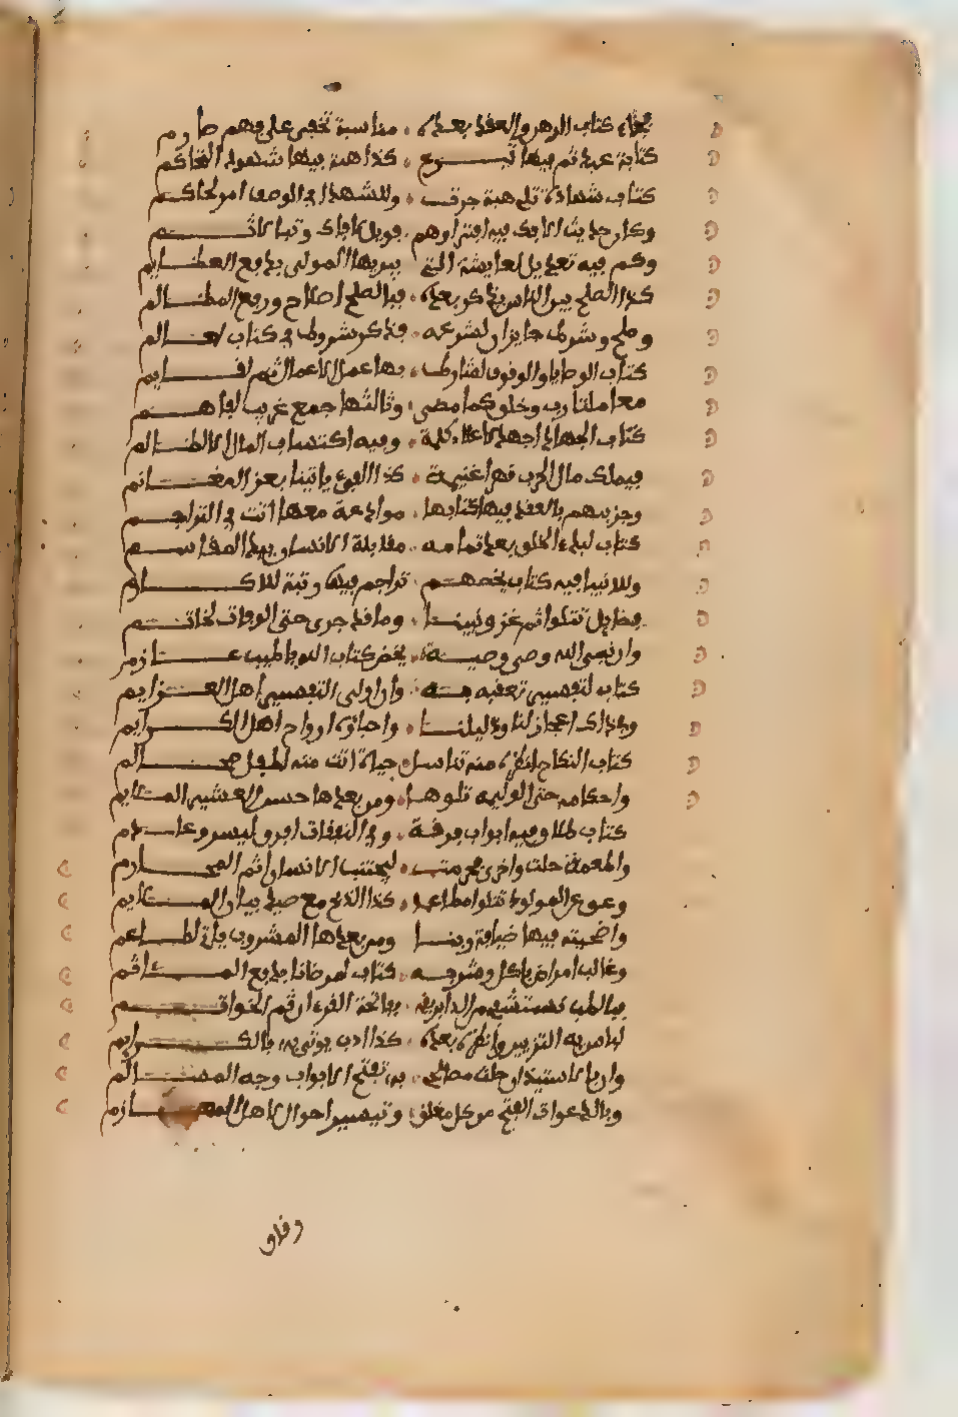 فجاء كتاب الرهن والعتق بعده مناسبة تخفى على فهم صارم
كتابة عبد ثم فيها تبرع كذا هبة فيها شهود التحاكم
كتاب شهادة تلي هبة جرت وللشهدا في الوصف امر لحاكم
وكان حديث الافك فيه افتراوهم فويل لافاك وتبا لاثم
وكم فيه تعديل لعايشة التي يبريها المولى بدفع العظايم
كذا الصلح بين الناس يذكر بعده فبالصلح اصلاح ورفع المظالم
وصلح وشرط جايزان لشرعه فذكر شروط في كتاب لعالم
كتاب الوصايا والوقوف لشارط بها عمل الاعمال ثم لقايم
معاملتا رب وخلق كما مضى وثالثها جمع غريب لفاهم
كتاب الجهاد اجهد لاعلاء كلمة وفيه اكتساب المال الا لظالم
فيملك مال الحرب قهرا غنيمة كذا الفيء ياتينا بعز المغانم
وجزيتهم بالعقد فيها كتابها موادعة معها اتت في التراجم
كتاب لبدء الخلق بعد تمامه مقابلة الانسان بدء المقاسم
وللانبيا فيه كتاب يخصهم تراجم فيها رتبة للاكارم
فضايل تتلوا ثم غزو نبينا وما قد جرى حتى الوفات لخاتم
وان نبي الله وصى وصية يخص كتاب الله يا طيب عازم
كتاب لتفسير تعقبه به وان اولى التفسير اهل العزايم
وفي ذاك اعجاز لنا ودليلنا واحياؤه ارواح اهل الكرايم
كتاب النكاح انظره منه تناسل حياة اتت منه لطفل محالم
واحكامه حتى الوليمه تلوها ومن بعدها حسن العشير الملايم
كتاب طلاق فيه ابواب فرقة وفي النفقات افرق ليسر وعادم
واطعمة حلت واخرى محرمت ليجتنب الانسان اثم المحارم
وعق عن المولود تتلوا مطاعما كذا الذبح مع صيد بيان الملايم
واضحية فيها ضيافة ربنا ومن بعدها المشروب ياتي لطاعم
وغالب امراض باكل وشربه كتاب لمرضانا بدفع المئاثم
فبالطب نستشفي من الداء برقية بفاتحة القرءان ثم الخواتم
لباس به التزيين وانظره بعده كذا ادب يوتى به بالكرايم
وان بالاستيذان حلت مصالح به تفتح الابواب وجه المسالم
وبالدعوات الفتح من كل مغلق وتيسير احوال لاهل المعازم